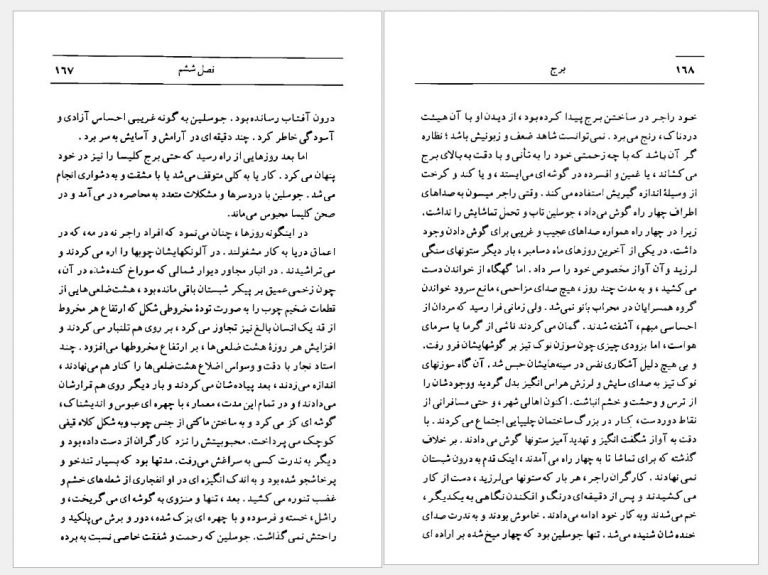 ۱۶۷ فصل ششم
درون آفتاب رسانده بود. جوسلین به گونه غریبی احساس آزادی و
آسودگی خاطر کرد. چند دقیقه ای در آرامش و آسایش به سر برد.
اما بعد روزهایی از راه رسید که حتی برج کلیسا را نیز در خود
پنهان می کرد. کار یا به کلی متوقف می‌شد یا با مشقت و به دشواری انجام
می‌شد. جوسلین با دردسرها و مشکلات متعدد به محاصره در می آمد و در
صحن کلیسا محبوس می‌ماند.
در اینگونه روزها، چنان می‌نمود که افراد راجر نه در مه، که در
اعماق دریا به کار مشغولند. در آلونکهایشان چوبها را اره می کردند و
می‌تراشیدند. در انبار مجاور دیوار شمالی که سوراخ کنده‌شده در آن،
چون زخمی عمیق بر پیکر شبستان باقی مانده بود، هشت‌ضلعی‌هایی از
قطعات ضخیم چوب را به صورت تودهٔ مخروطی شکل که ارتفاع هر مخروط
از قد یک انسان بالغ نیز تجاوز می کرد، بر روی هم تلنبار می کردند و
افزایش هر روزهٔ هشت ضلعی‌ها، بر ارتفاع مخروطها می‌افزود. چند
استاد نجار با دقت و وسواس اضلاع هشت‌ضلعی‌ها را کنار هم می‌نهادند،
اندازه می‌زدند، بعد پیاده‌شان می کردند و بار دیگر روی هم قرارشان
می‌دادند؛ و در تمام این مدت، معمار، با چهره ای عبوس و اندیشناک،
گوشه ای کز می کرد و به ساختن ماکتی از جنس چوب و به شکل کلاه قیفی
کوچک می پرداخت. محبوبیتش را نزد کارگران از دست داده بود و
دیگر به ندرت کسی به سراغش می‌رفت. مدتها بود که بسیار تندخو و
پرخاشجو شده بود و به اندک انگیزه ای در او انفجاری از شعله‌های خشم و
غضب تنوره می کشید. بعد، تنها و منزوی به گوشه ای می گریخت، و
راشل، خسته و فرسوده و با چهره ای بزک شده، دور و برش می‌پلکید و
راحتش نمی گذاشت. جوسلین که رحمت و شفقت خاصی نسبت به برده
۱۶۸ برج
خود راجر در ساختن برج پیدا کرده بود، از دیدن او با آن هیئت
دردناک، رنج می‌برد. نمی‌توانست شاهد ضعف و زبونیش باشد؛ نظاره
گر آن باشد که با چه زحمتی خود را به تأنی و با دقت به بالای برج
می کشاند، یا غمین و افسرده در گوشه ای می‌ایستد، و یا کند و کرخت
از وسیلهٔ اندازه گیریش استفاده می کند. وقتی راجر میسون به صداهای
اطراف چهار راه گوش می‌داد، جوسلین تاب و تحمل تماشایش را نداشت.
زیرا در چهار راه همواره صداهای عجیب و غریبی برای گوش دادن وجود
داشت. در یکی از آخرین روزهای ماه دسامبر، بار دیگر ستونهای سنگی
لرزید و آن آواز مخصوص خود را سر داد. اما گهگاه از خواندن دست
می کشید، و به مدت چند روز، هیچ صدای مزاحمی، مانع سرود خواندن
گروه همسرایان در محراب بانو نمی‌شد. ولی زمانی فرا رسید که مردان از
احساسی مبهم، آشفته شدند. گمان می کردند ناشی از گرما یا سرمای
هواست، اما بزودی چیزی چون سوزن نوک تیز بر گوشهایشان فرو رفت.
و بی هیچ دلیل آشکاری نفس در سینه‌هایشان حبس شد. آن گاه سوزنهای
نوک تیز به صدای سایش و لرزش هراس انگیز بدل گردید و وجودشان را
از ترس و وحشت و خشم انباشت. اکنون اهالی شهر، و حتی مسافرانی از
نقاط دوردست، کنار در بزرگ ساختمان چلیپایی اجتماع می کردند. با
دقت به آواز شگفت انگیز و تهدیدآمیز ستونها گوش می دادند. بر خلاف
گذشته که برای تماشا تا به چهار راه می آمدند، اینک قدم به درون شبستان
نمی نهادند. کارگران راجر، هر بار که ستونها می‌لرزید، دست از کار
می کشیدند و پس از دقیقه‌ای درنگ و افکندن نگاهی به یکدیگر،
خم می‌شدند و به کار خود ادامه می‌دادند. خاموش بودند و به ندرت صدای
خنده شان شنیده می‌شد. تنها جوسلین بود که چهار میخ شده بر اراده ای